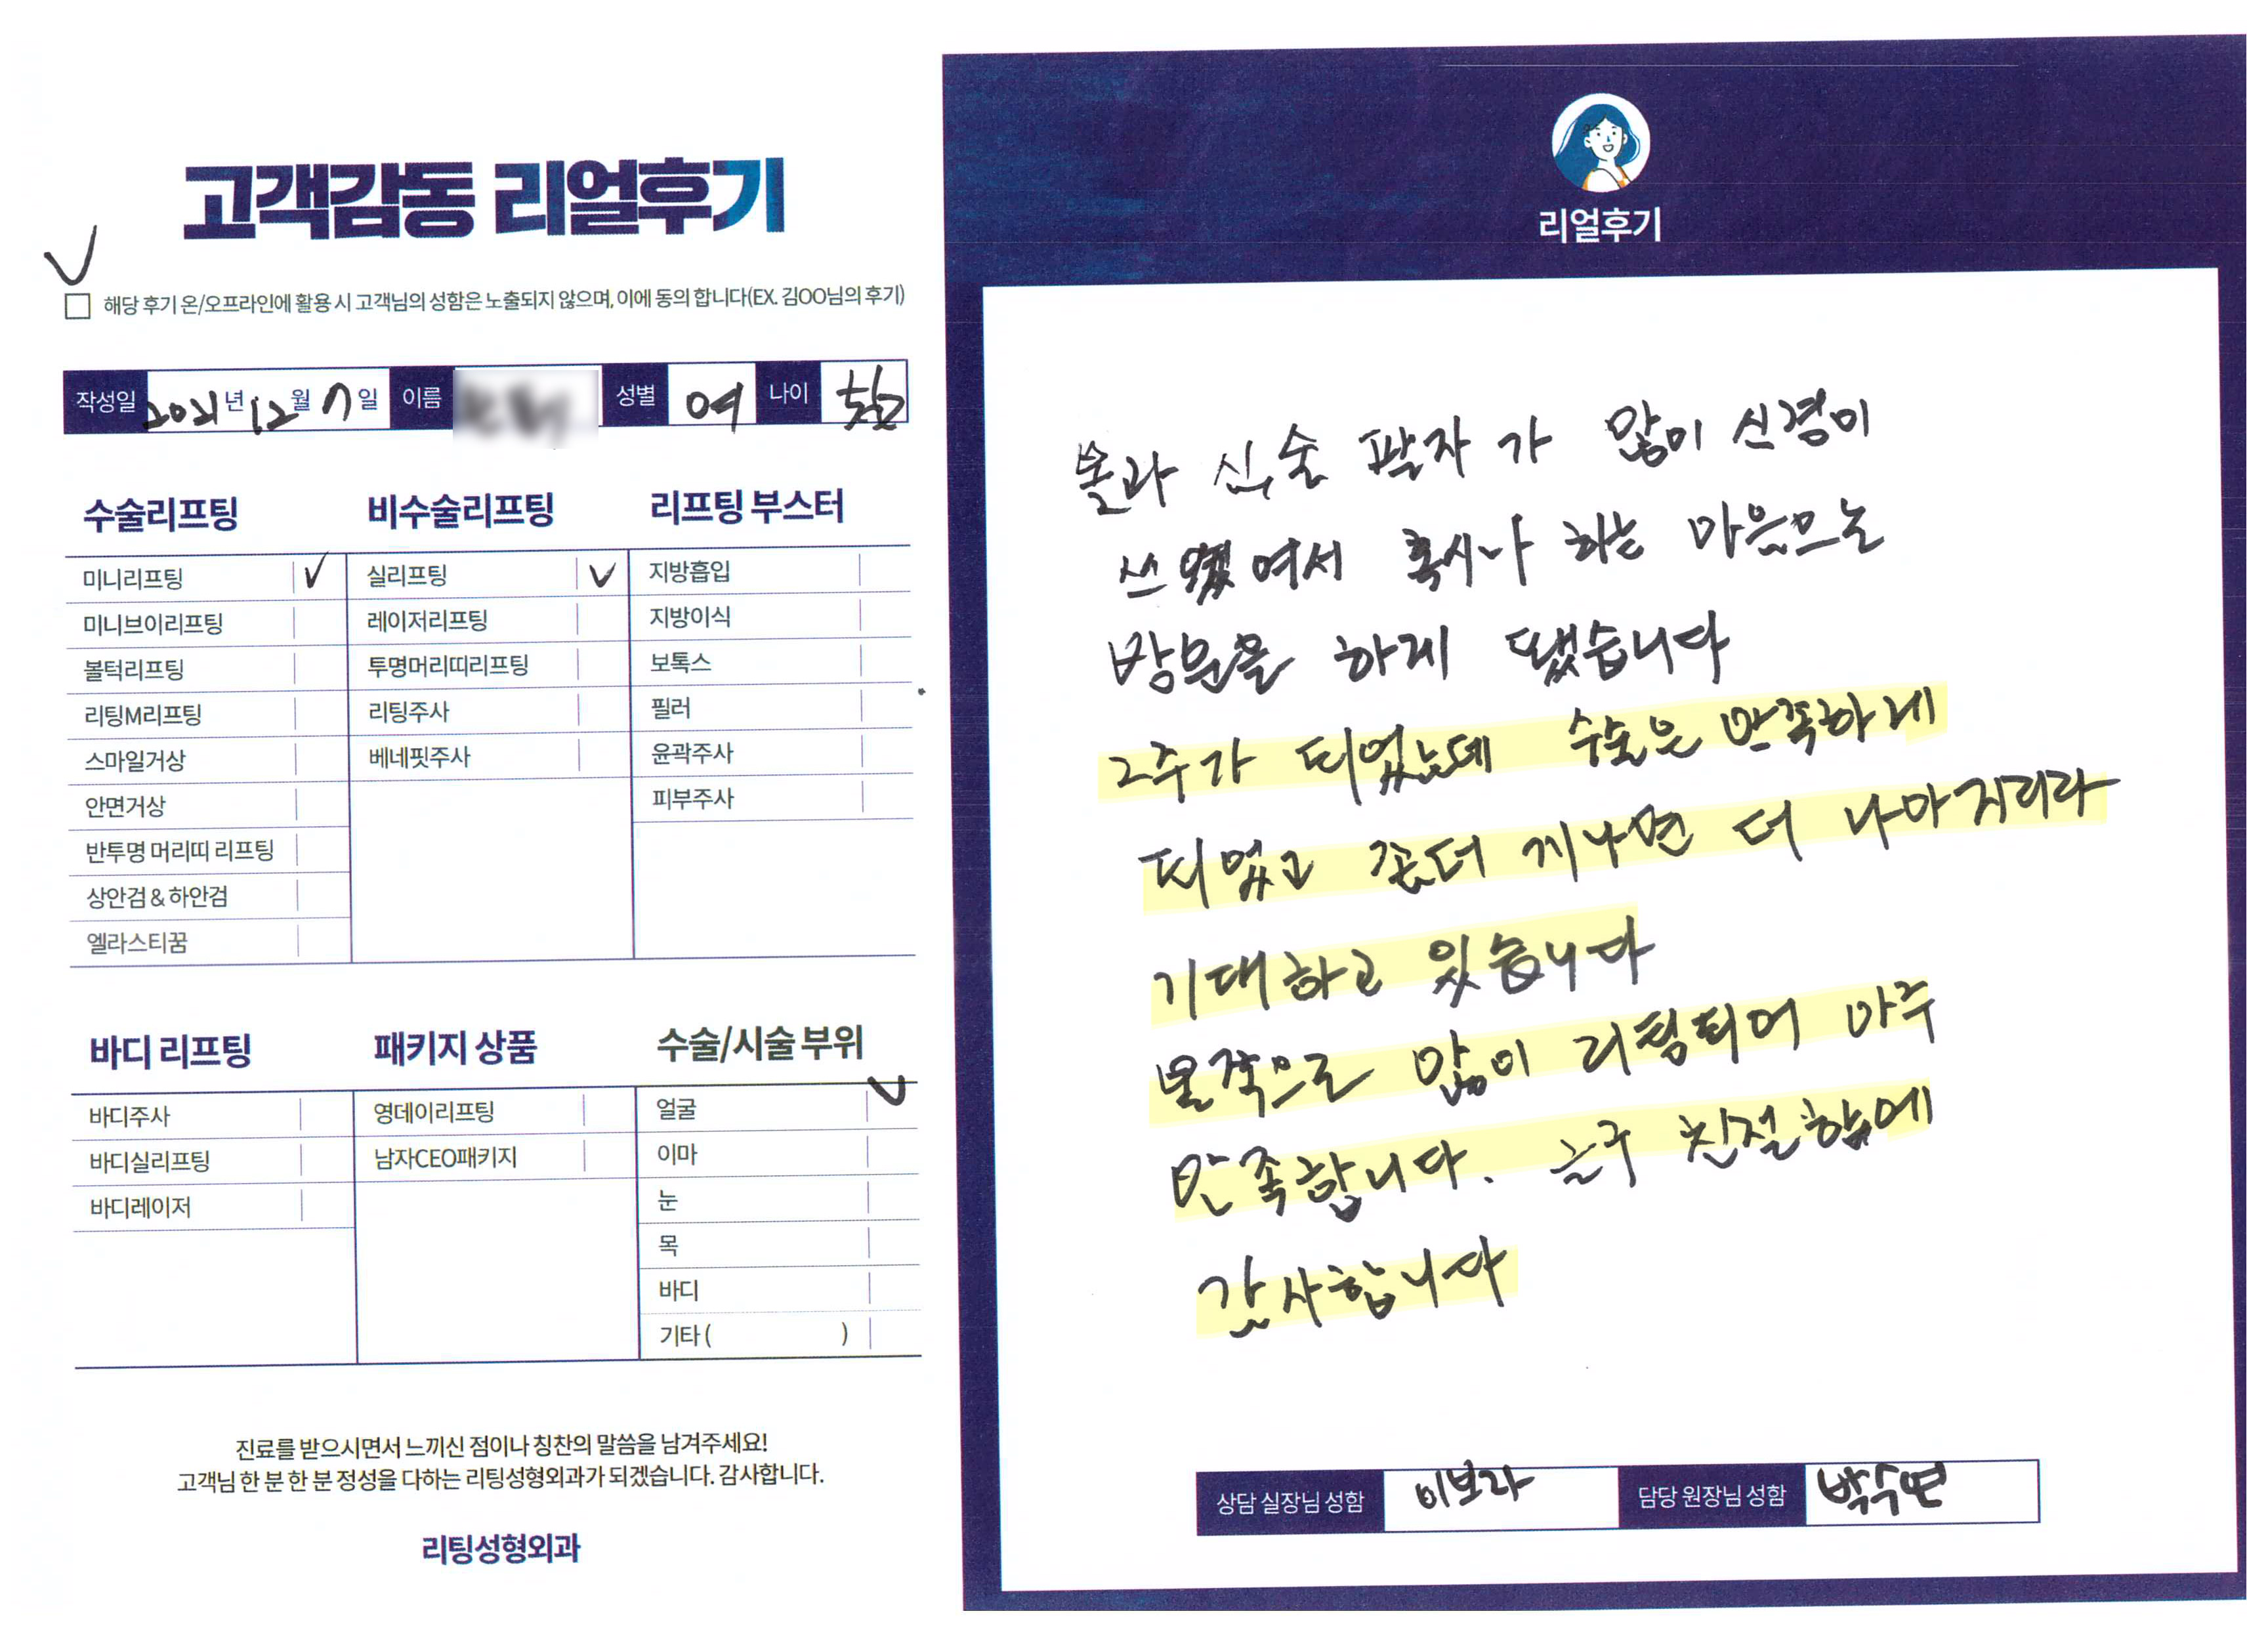 고객감동 리얼후기
해당 후기 온/오프라인에 활용 시 고객님의 성함은 노출되지 않으며, 이에 동의 합니다(EX. 김OO님의 후기)
작성일 2021년 12월 7일 이름 성별 여 나이
수술리프팅
미니리프팅
미니브이리프팅
볼턱리프팅
리팅M리프팅
스마일거상
안면거상
반투명 머리띠 리프팅
상안검 & 하안검
엘라스티꿈
비수술리프팅
실리프팅
레이저리프팅
투명머리띠리프팅
리팅주사
베네핏주사
리프팅 부스터
지방흡입
지방이식
보톡스
필러
윤곽주사
피부주사
바디 리프팅
바디주사
바디실리프팅
바디레이저
패키지 상품
영데이리프팅
남자CEO패키지
수술/시술 부위
얼굴
이마
눈
목
바디
기타 ( )
진료를 받으시면서 느끼신 점이나 칭찬의 말씀을 남겨주세요!
고객님 한 분 한 분 정성을 다하는 리팅성형외과가 되겠습니다. 감사합니다.
리팅성형외과
리얼후기
볼과 심술 팔자 가 많이 신경이
쓰 여서 혹시나 하는 마음으로
방문을 하게 됐습니다
2주가 되었는데 수술은 만족하게
되었고 좀더 지나면 더 나아지리라
기대하고 있습니다
볼쪽으로 많이 리팅되어 아주
만족합니다. 친절함에
감사합니다
상담 실장님 성함 이보라 담당 원장님 성함 박수연